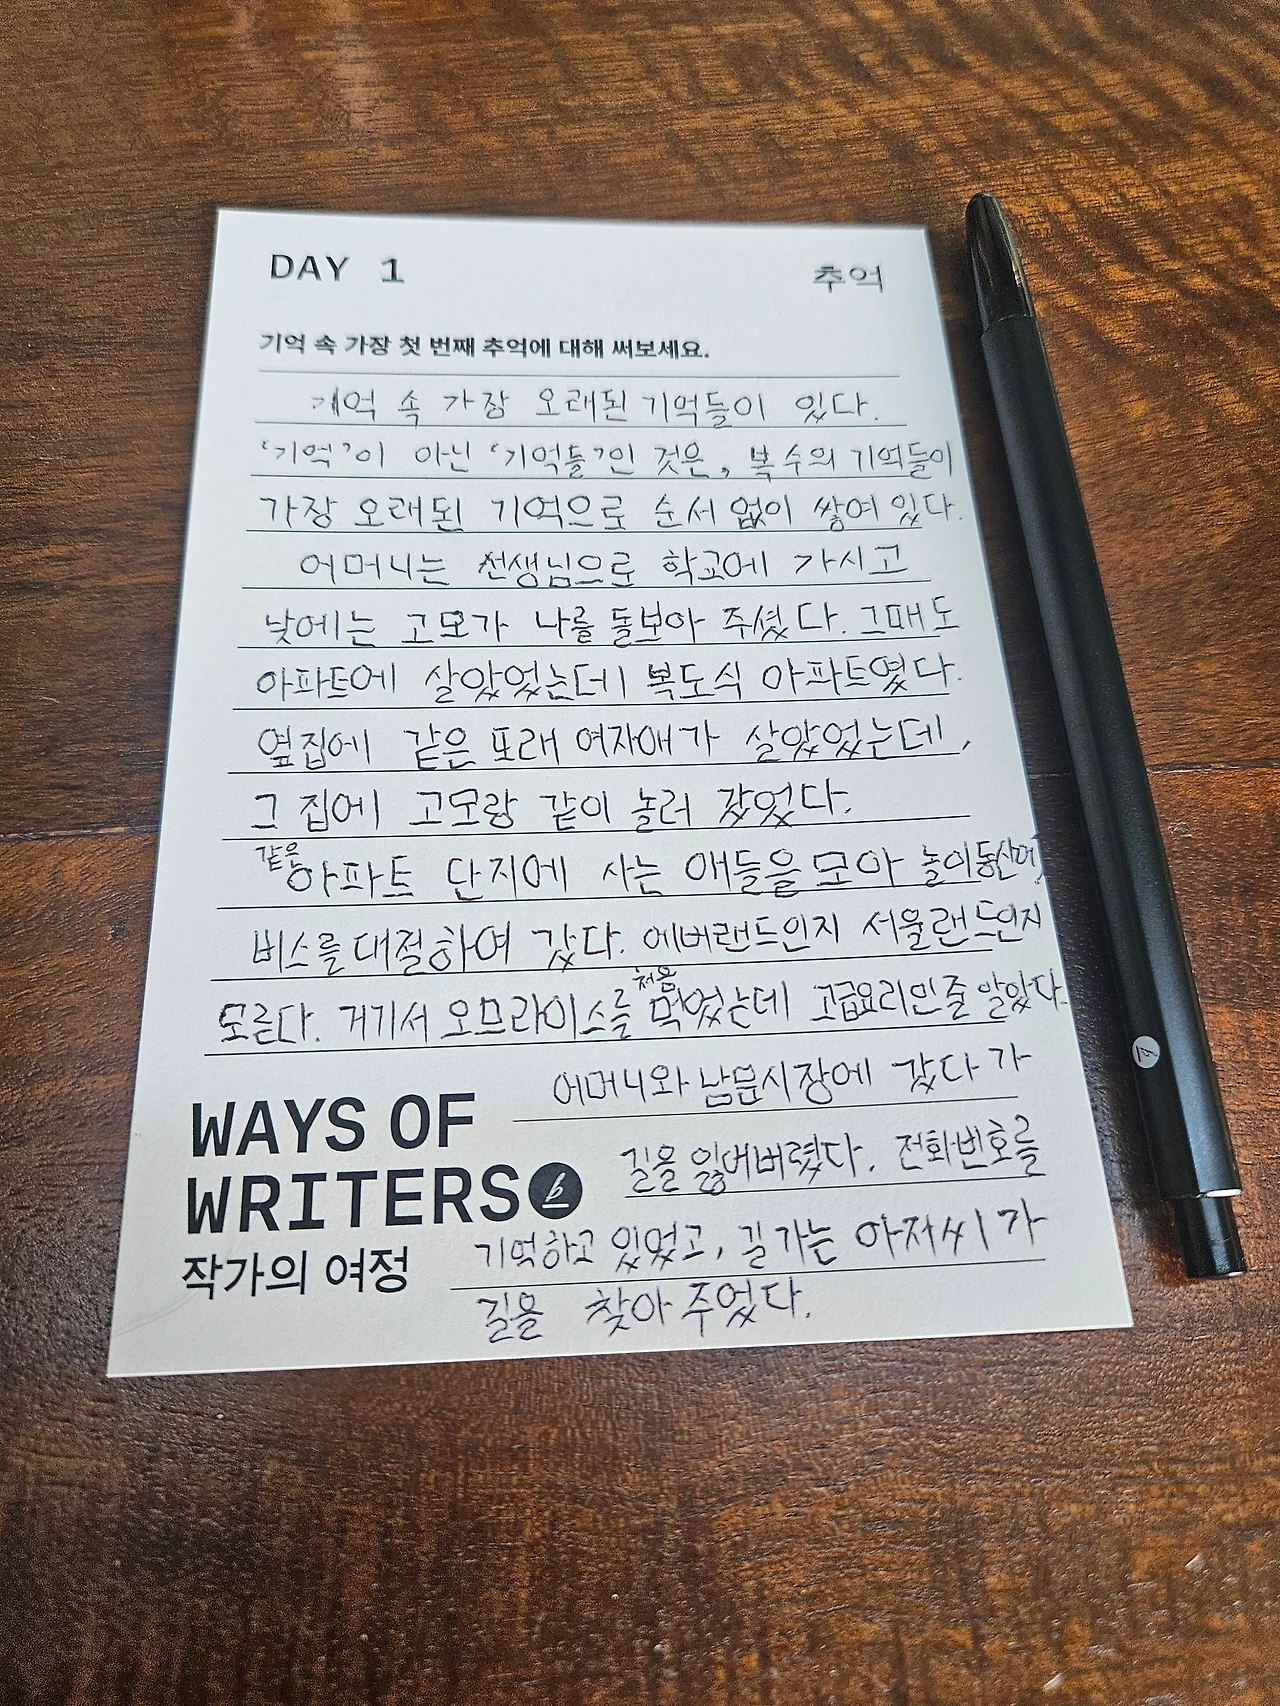 DAY 1 추억
기억 속 가장 첫 번째 추억에 대해 써보세요.
기억 속 가장 오래된 기억들이 있다.
‘기억’이 아닌 ‘기억들’인 것은, 복수의 기억들이
가장 오래된 기억으로 순서 없이 쌓여 있다.
어머니는 선생님으로 학교에 가시고
낮에는 고모가 나를 돌보아 주셨다. 그때도
아파트에 살았었는데 복도식 아파트였다.
옆집에 같은 또래 여자애가 살았었는데,
그 집에 고모랑 같이 놀러 갔었다.
같은
아파트 단지에 사는 애들을 모아 놀이동산에
버스를 대절하여 갔다. 에버랜드인지 서울랜드인지
처음
모른다. 거기서 오므라이스를 먹었는데 고급요리인줄 알았다.
어머니와 남문시장에 갔다가
길을 잃어버렸다. 전화번호를
기억하고 있었고, 길 가는 아저씨가
길을 찾아 주었다.
WAYS OF
WRITERS b
작가의 여정
b